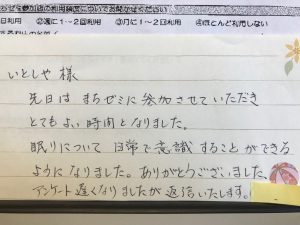 ①毎日利用 ②週に1~2回利用 ③月に1~2回利用 ④ほとんど利用しない
いとしや 様
先日は まちゼミに 参加させていただき
とてもよい時間となりました。
眠りについて 日常で意識することができる
ようになりました。ありがとうございました。
アンケート遅くなりましたが返信いたします。